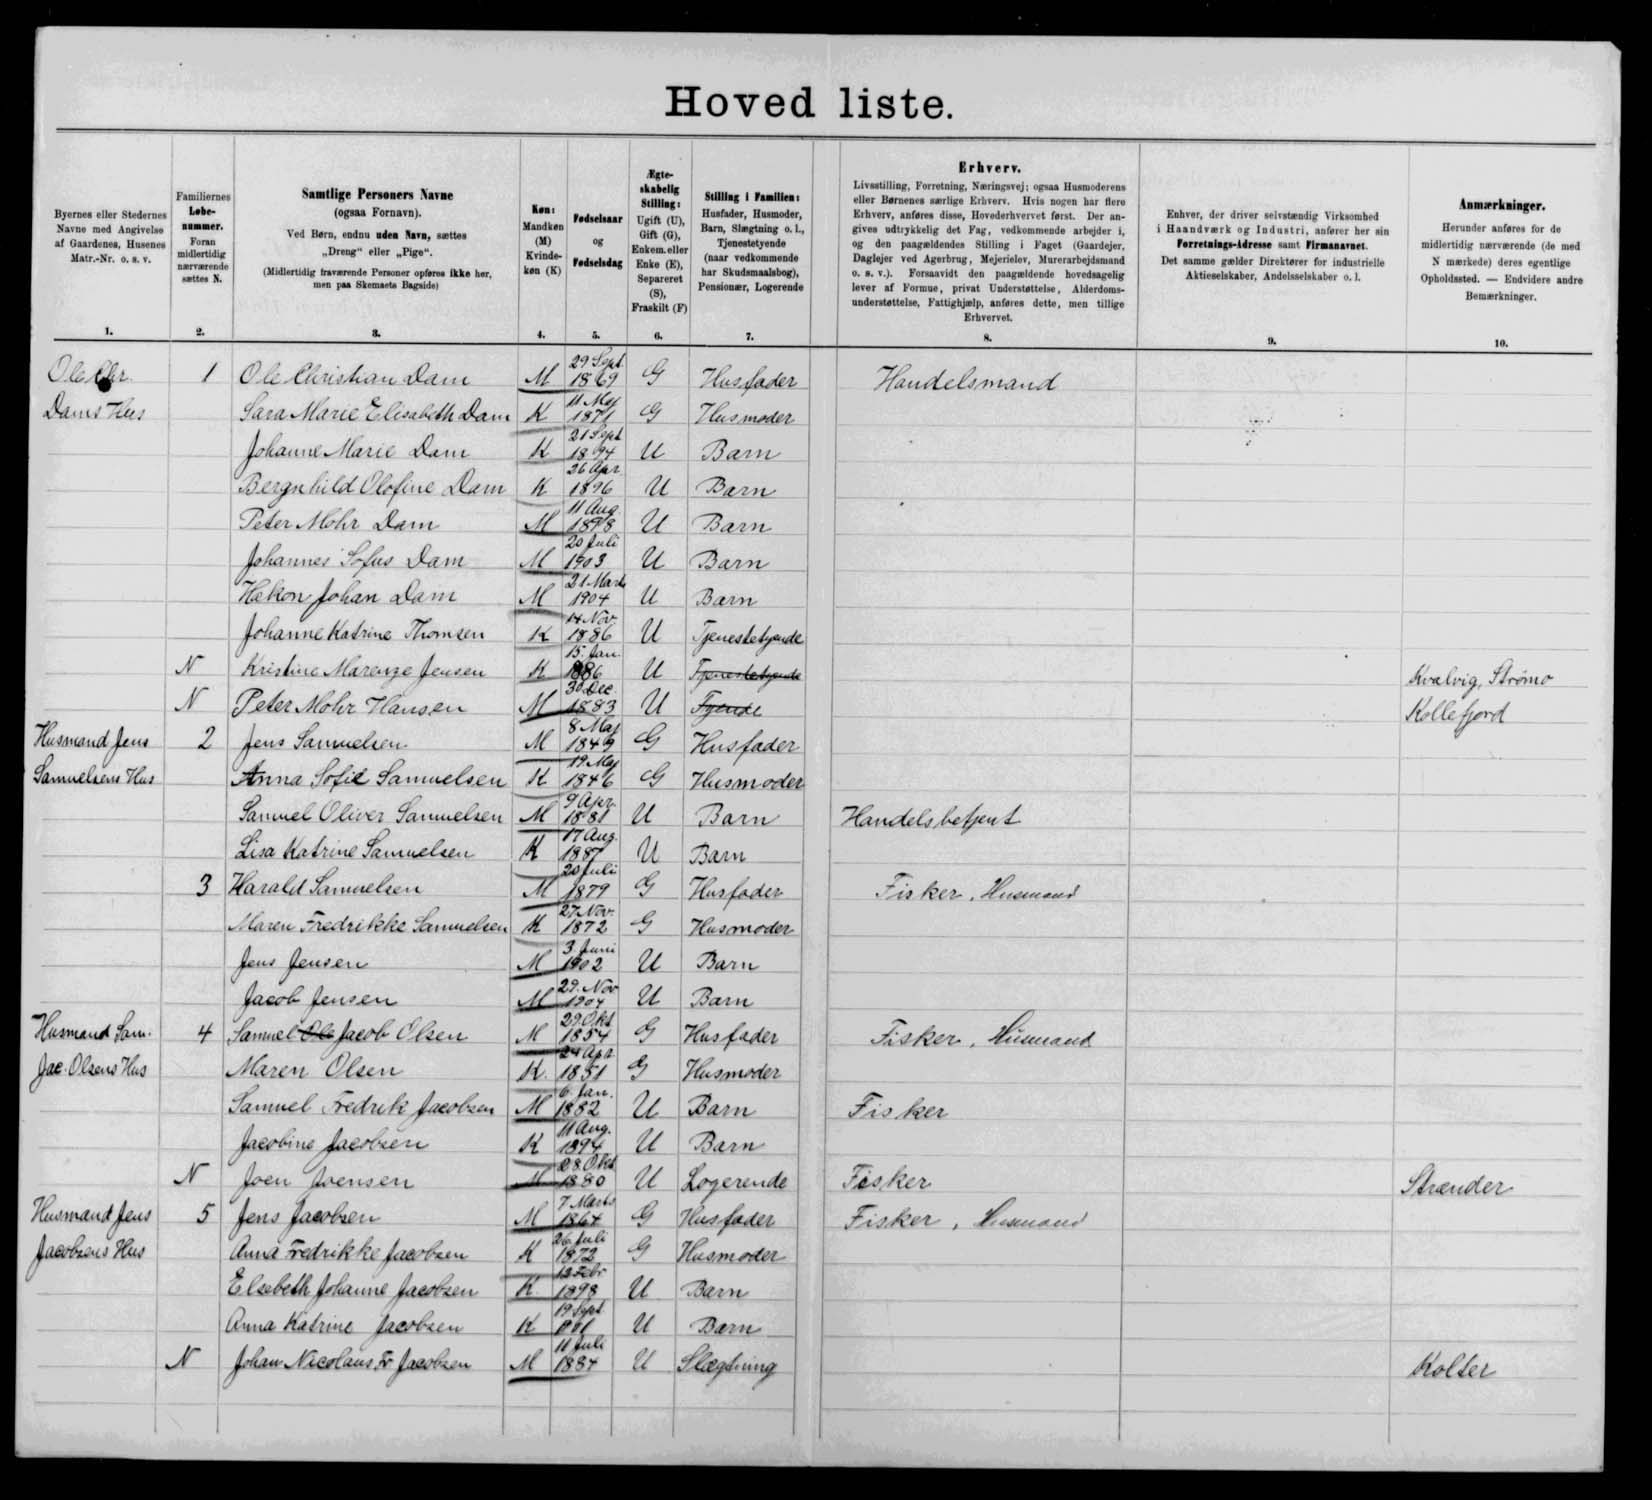 Hoved liste.
Byernes eller Stedernes Navne med Angivelse af Gaardenes, Husenes Matr.-Nr. o. s. v.
Familiernes Løbenummer. Foran midlertidig nærværende sættes N.
Samtlige Personers Navne (ogsaa Fornavn). Ved Børn, endnu uden Navn, sættes „Dreng“ eller „Pige“. (Midlertidig fraværende Personer opføres ikke her, men paa Skemaets Bagside)
Køn: Mandkøn (M) Kvindekøn (K)
Fødselsaar og Fødselsdag
Ægteskabelig Stilling: Ugift (U), Gift (G), Enkem. eller Enke (E), Separeret (S), Fraskilt (F)
Stilling i Familien: Husfader, Husmoder, Barn, Slægtning o. l., Tjenestetyende (naar vedkommende har Skudsmaalsbog), Pensionær, Logerende
Erhverv. Livsstilling, Forretning, Næringsvej; ogsaa Husmoderens eller Børnenes særlige Erhverv. Hvis nogen har flere Erhverv, anføres disse, Hovederhvervet først. Der angives udtrykkelig det Fag, vedkommende arbejder i, og den paagældendes Stilling i Faget (Gaardejer, Daglejer ved Agerbrug, Mejerielev, Murerarbejdsmand o. s. v.). Forsaavidt den paagældende hovedsagelig lever af Formue, privat Understøttelse, Alderdomsunderstøttelse, Fattighjælp, anføres dette, men tillige Erhvervet.
Enhver, der driver selvstændig Virksomhed i Haandværk og Industri, anfører her sin Forretnings-Adresse samt Firmanavnet. Det samme gælder Direktører for industrielle Aktieselskaber, Andelsselskaber o. l.
Anmærkninger. Herunder anføres for de midlertidig nærværende (de med N mærkede) deres egentlige Opholdssted. — Endvidere andre Bemærkninger.
1. 2. 3. 4. 5. 6. 7. 8. 9. 10.
Ole Chr. 1 Ole Christian Dam M 29 Sept. 1869 G Husfader Handelsmand
Dams Hus Sara Marie Elisabeth Dam K 11 Maj 1871 G Husmoder
Johanne Marie Dam K 21 Sept 1894 U Barn
Bergnhild Olofine Dam K 26 Apr. 1896 U Barn
Peter Mohr Dam M 11 Aug. 1898 U Barn
Johannes Sofus Dam M 20 Juli 1903 U Barn
Hakon Johan Dam M 21 Marts 1904 U Barn
Johanne Katrine Thomsen K 14 Nov. 1886 U Tjenestetyende
N Kristine Marenze Jensen K 15. Jan. 1886 U Tjenestetyende Kvalvig, Strømø
N Peter Mohr Hansen M 30 Dec. 1883 U Tyende Kollefjord
Husmand Jens 2 Jens Samuelsen M 8 Maj 1849 G Husfader
Samuelsens Hus Anna Sofie Samuelsen K 19 Maj 1846 G Husmoder
Samuel Oliver Samuelsen M 9 Apr. 1881 U Barn Handelsbetjent
Lisa Katrine Samuelsen K 17 Aug. 1887 U Barn
3 Harald Samuelsen M 20 Juli 1879 G Husfader Fisker, Husmand
Maren Fredrikke Samuelsen K 27 Nov. 1872 G Husmoder
Jens Jensen M 3 Juni 1902 U Barn
Jacob Jensen M 29. Nov 1904 U Barn
Husmand Sam. 4 Samuel Ole Jacob Olsen M 29 Okt 1854 G Husfader Fisker, Husmand
Jac. Olsens Hus Maren Olsen K. 24 Apr. 1851 G Husmoder
Samuel Fredrik Jacobsen M 6. Jan. 1882 U Barn Fisker
Jacobine Jacobsen K 11 Aug. 1894 U Barn
N Joen Joensen M 28. Okt 1880 U Logerende Fisker Strænder
Husmand Jens 5 Jens Jacobsen M 7 Marts 1864 G Husfader Fisker, Husmand
Jacobsens Hus Anna Fredrikke Jacobsen K 26 Juli 1872 G Husmoder
Elsebeth Johanne Jacobsen K. 12 Febr 1898 U Barn
Anna Katrine Jacobsen K 19 Sept. U Barn
N Johan Nicolaus Fr Jacobsen M 11 Juli 1884 U Slægtning Kolter